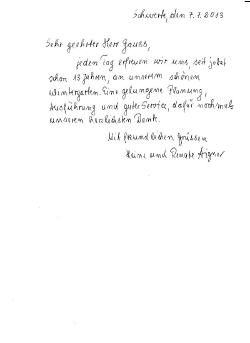 Schwerte, den 7.7.2013
Sehr geehrter Herr Gauss,
jeden Tag erfreuen wir uns, seit jetzt
schon 13 Jahren, an unserem schönen
Wintergarten. Eine gelungene Planung,
Ausführung und guter Service, dafür nochmals
unseren herzlichsten Dank.
Mit freundlichen Grüssen
Heinz und Renate